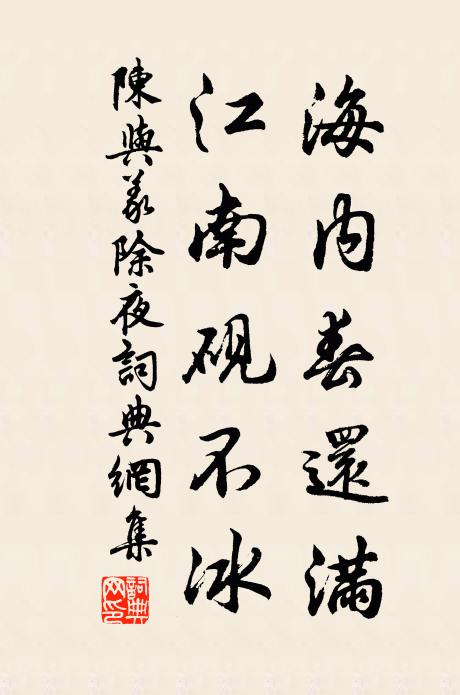 海内春還滿
江南硯不冰
陳與義除夜詞典網集
詞典網印